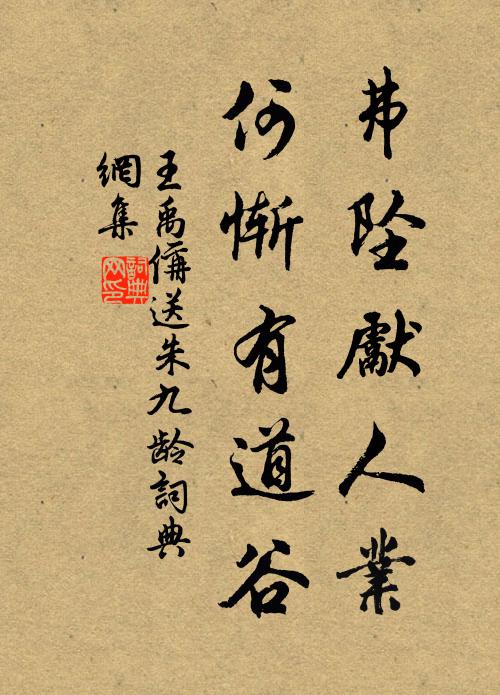 弗墜獻人業
何慚有道谷
王禹偁送朱九龄詞典
網集
詞典
网印